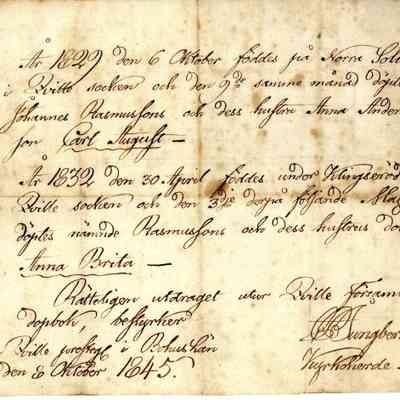 År 1829 den 6 Oktober föddes på Norra Sol
i Qville socken och den 9de samme månad döpt
Johannes Rasmussons och dess hustru Anna Ander
son Carl August —
År 1832 den 30 April föddes under Klingseröd
Qville socken och den 3die derpå följande Maj
döptes nämnde Rasmussons och dess hustrus do
Anna Brita —
Rätteligen utdraget utur Qville Försam
dopbok, bestyrker
Qville prestg. i Bohuslän
den 8 Oktober 1845.
Ljungber
Kyrkoherde